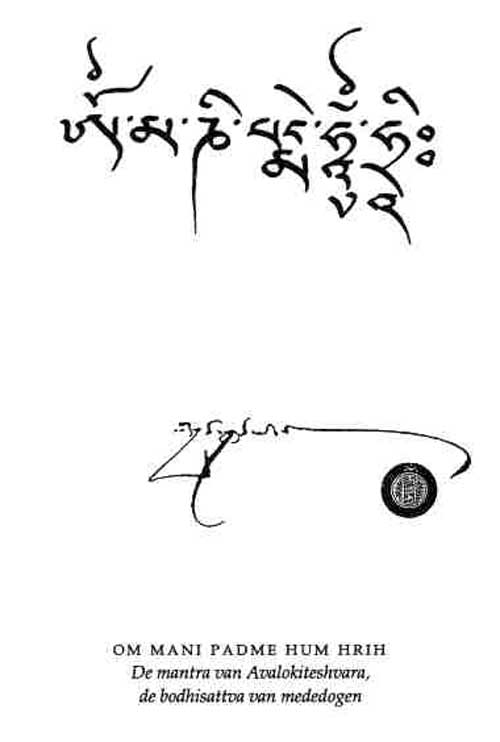 ༀ་མ་ཎི་པདྨེ་ཧཱུྃ་ཧྲཱིཿ
OM MANI PADME HUM HRIH
De mantra van Avalokiteshvara,
de bodhisattva van mededogen